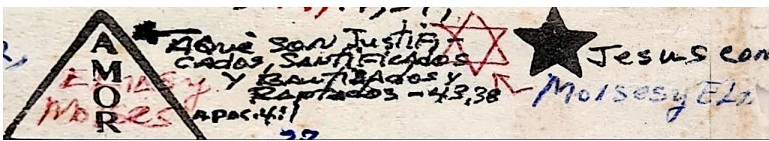 AMOR
Elias y
Moises
AQUÈ SON JUSTIFI-
CADOS, SANTIFICADOS
Y BAUTIZADOS Y
RAPTADOS - 43,38
APOC. 4:1
Jesus con
Moises y Elia